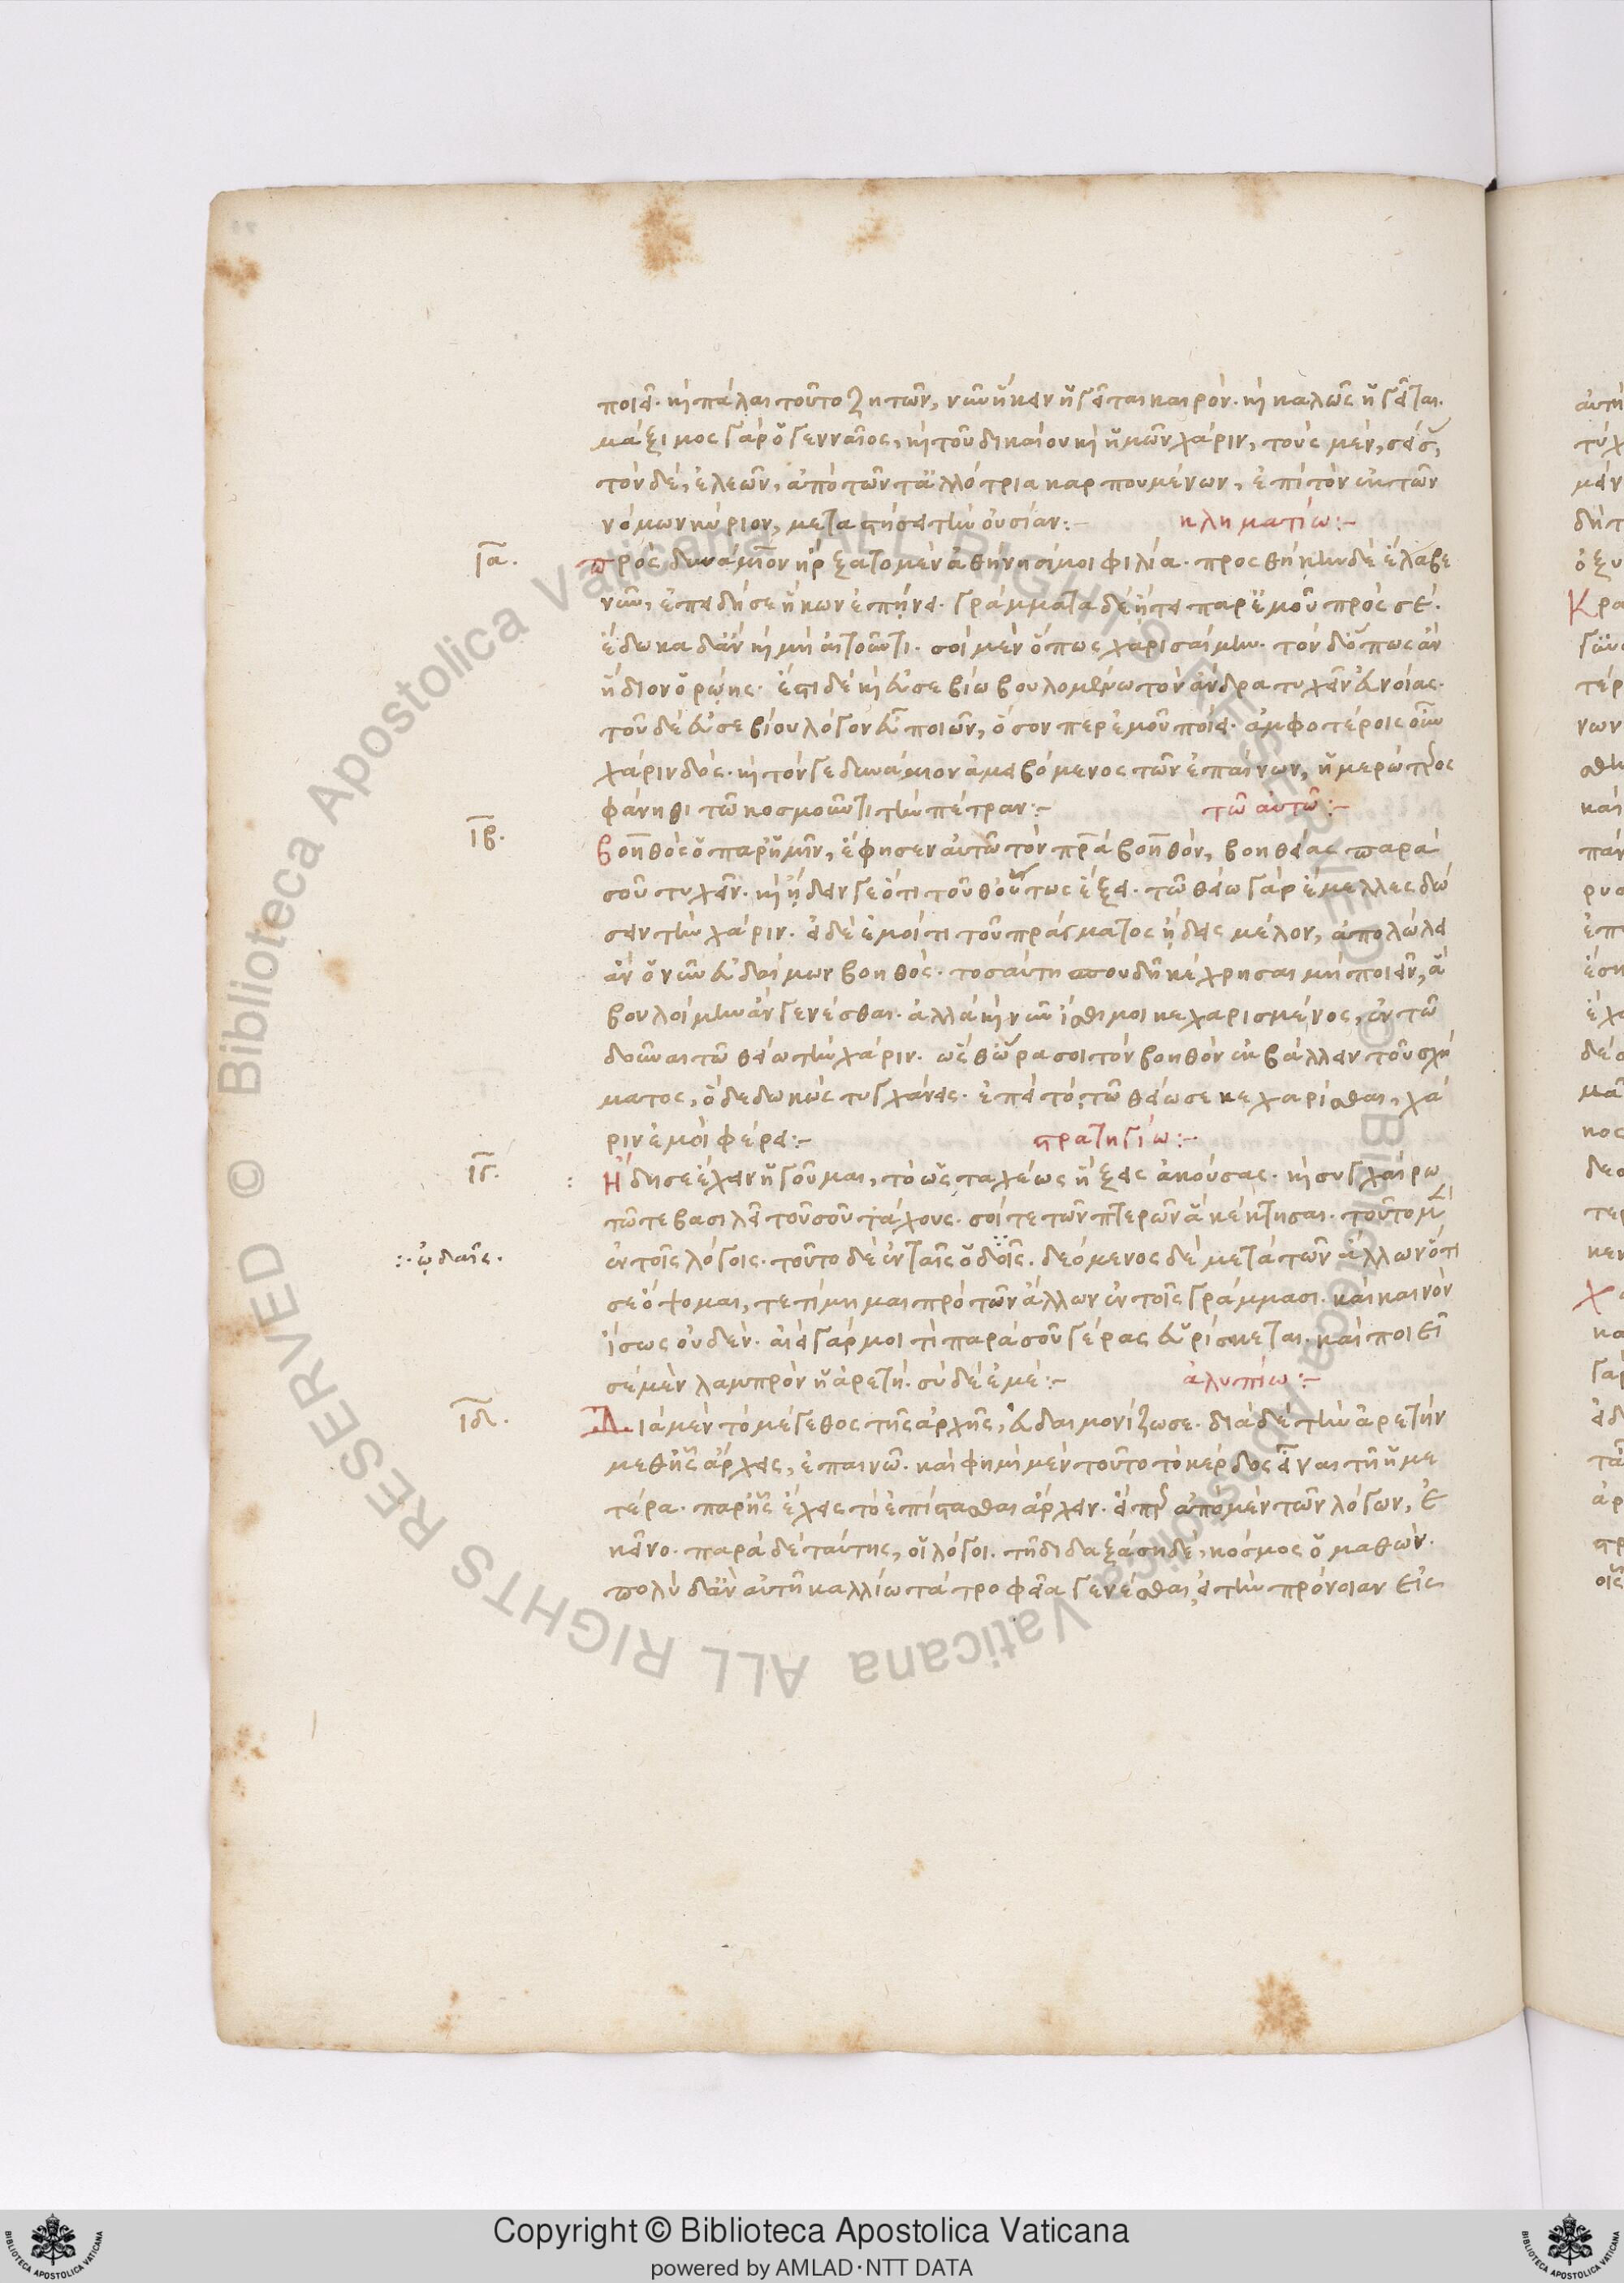 ποιεῖ. καὶ πάλαι τοῦτο ζητῶν, νῦν ἥκειν ἡγεῖται καιρόν. καὶ καλῶς ἡγεῖται.
μάξιμος γὰρ ὁ γενναῖος, καὶ τοῦ δικαίου καὶ ἡμῶν χάριν, τοὺς μὲν,
τὸν δὲ, ἐλεῶν, ἀπὸ τῶν τἀλλότρια καρπουμένων, ἐπὶ τὸν ἐκ τῶν
νόμων κύριον, μεταστήσει τὴν οὐσίαν:- κληματίω:-
ια. πρὸς δυνάμιον ἤρξατο μὲν ἀθήνησί μοι φιλία. προσθήκην δὲ ἔλαβε
νῦν, ἐπειδή σε ἥκων ἐπήνει. γράμματα δὲ ἤτει παρ' ἐμοῦ πρὸς σέ.
ἔδωκα δ' ἂν καὶ μὴ αἰτοῦντι. σοὶ μὲν ὅπως χαρισαίμην. τὸν δ' ὅπως ἂν
ἥδιον ὁρώης. ἔστι δὲ καὶ εὐσεβίω βουλομένω τὸν ἄνδρα τυχεῖν εὐνοίας.
τοῦ δὲ εὐσεβίου λόγον εὖ ποιῶν, ὅσον περ ἐμοῦ ποιεῖ. ἀμφοτέροις οὖν
χάριν δός. καὶ τόν γε δυνάμιον ἀμειβόμενος τῶν ἐπαίνων, ἡμερώτερος
φάνηθι τῶ κοσμοῦντι τὴν πέτραν:- τῶ αὐτῶ:-
ιβ. βοηθὸς ὁ παρ' ἡμῖν, ἔφησεν αὐτῶ τὸν πρα βοηθὸν, βοηθείας παρὰ
σοῦ τυχεῖν. καὶ ἤδειν γε ὅτι τοῦθ' οὕτως ἕξει. τῶ θείω γὰρ ἔμελλες δώ
σειν τὴν χάριν. εἰ δὲ ἐμοί τι τοῦ πράγματος ἤδεις μέλον, ἀπολώλει
ἂν ὁ νῦν εὐδαίμων βοηθός. τοσαύτη σπουδῆ κέχρησαι μὴ ποιεῖν, ἃ
βουλοίμην ἂν γενέσθαι. ἀλλὰ καὶ νῦν ἴσθι μοι κεχαρισμένος, ἐν τῶ
δοῦναι τῶ θείω τὴν χάριν. ὡς θ' ὥρα σοι τὸν βοηθὸν ἐκβάλλειν τοῦ σχή
ματος, ὃ δεδωκὼς τυγχάνεις. ἐπεὶ τό, τῶ θείω σε κεχαρίσθαι, χά
ριν ἐμοὶ φέρει:- στρατηγίω:-
ιγ. Ἤδη σε ἔχειν ἡγοῦμαι, τὸ ὡς ταχέως ἥξεις ἀκούσας. καὶ συγχαίρω
τῶ τε βασιλεῖ τοῦ σοῦ τάχους. σοί τε τῶν πτερῶν ἃ κέκτησαι. τοῦτο μὲν
:· ᾠδαῖς. ἐν τοῖς λόγοις. τοῦτο δὲ ἐν ταῖς ὁδοῖς. δεόμενος δὲ μετὰ τῶν ἄλλων ὅτι
σε ὄψομαι, τετίμημαι πρὸ τῶν ἄλλων ἐν τοῖς γράμμασι. καὶ καινὸν
ἴσως οὐδέν. ἀεὶ γάρ μοι τὶ παρὰ σοῦ γέρας εὑρίσκεται. καὶ ποιεῖ
σὲ μὲν λαμπρὸν ἡ ἀρετή. σὺ δὲ ἐμέ:- ἀλυπίω:-
ιδ. Διὰ μὲν τὸ μέγεθος τῆς ἀρχῆς, εὐδαιμονίζω σε. διὰ δὲ τὴν ἀρετὴν
μεθ' ἧς ἄρχεις, ἐπαινῶ. καὶ φημὶ μὲν τοῦτο τὸ κέρδος εἶναι τῆ ἡμε
τέρα. παρ' ἧς ἔχεις τὸ ἐπίστασθαι ἄρχειν. εἴπερ ἀπὸ μὲν τῶν λόγων, ἐ
κεῖνο. παρὰ δὲ ταύτης, οἱ λόγοι. τῆ διδαξάση δὲ, κόσμος ὁ μαθών.
πολὺ δ' ἂν αὐτῆ καλλίω τὰ τροφεῖα γενέσθαι, εἰ τὴν πρόνοιαν εἰς